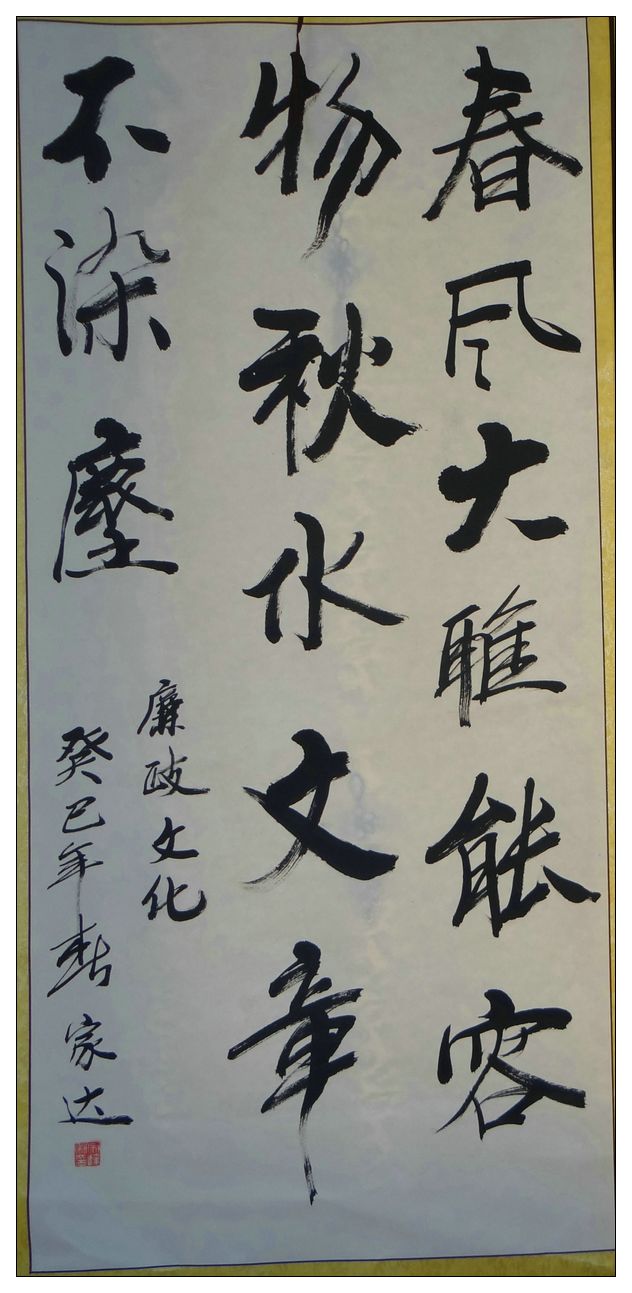 春风大雅能容
物秋水文章
不染塵
廉政文化
癸巳年春
家达